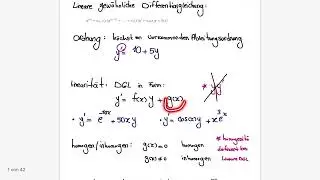 Lineare gewöhnliche Differentialgleichung:
Ordnung: höchste vorkommenden Ableitungsordnung
y' = 10 + 5y
Linearität: DGL in Form:
y' = f(x) y + g(x)
• y' = e^-3x + 50xy • y' = cos(x) y + x e^3x
homogen/inhomogen: g(x) = 0 homogen
g(x) ≠ 0 inhomogen
* homogenität
Lineare DGL
1 von 42